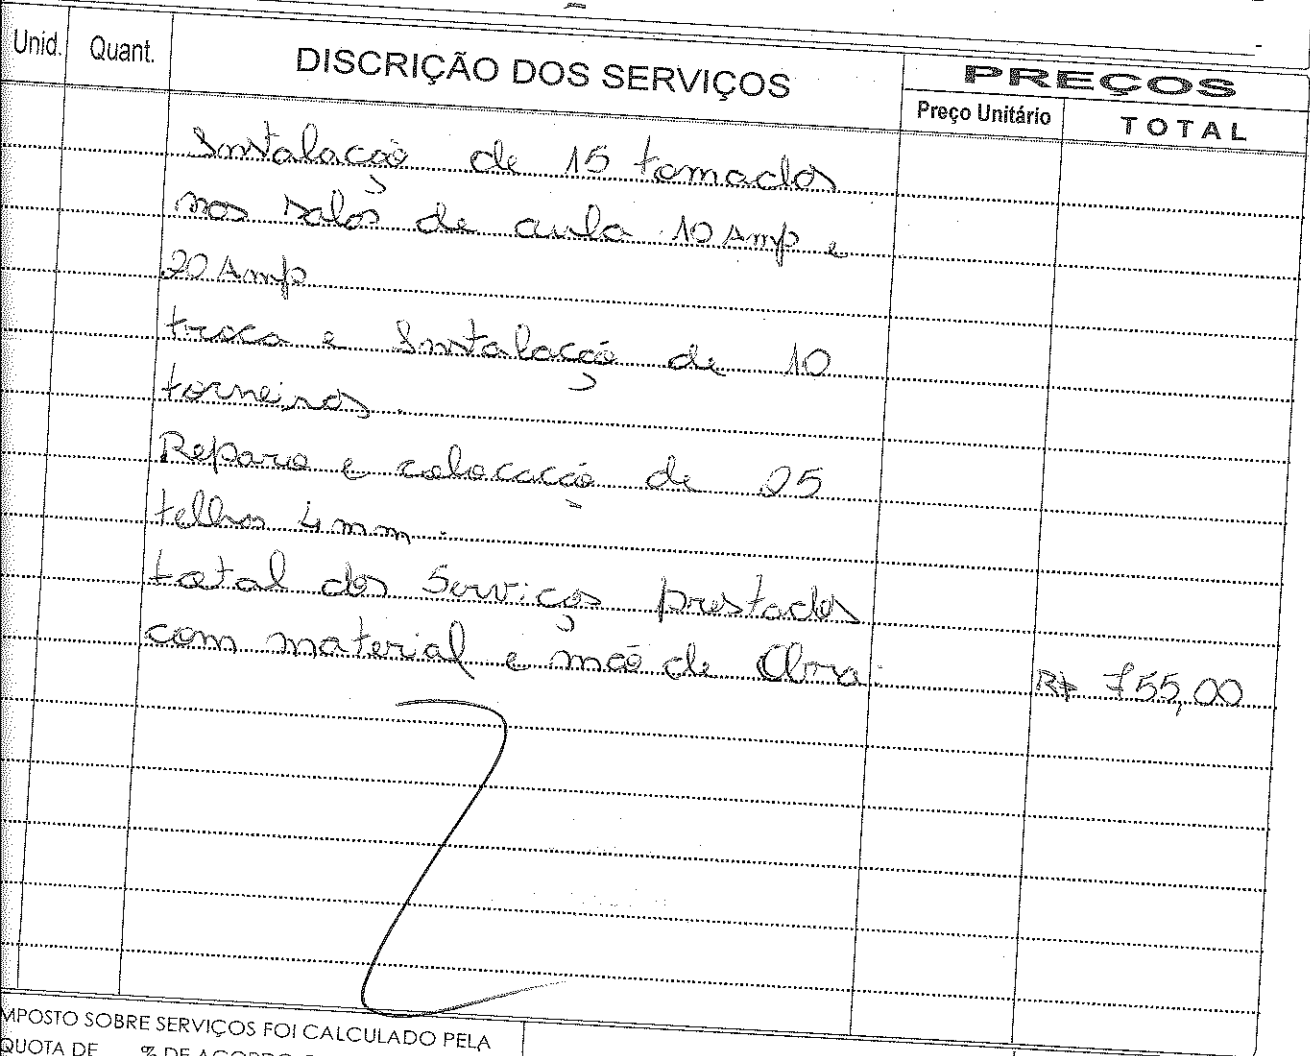 Unid. Quant. DISCRIÇÃO DOS SERVIÇOS PREÇOS
Preço Unitário TOTAL
Instalação de 15 tomadas
nas salas de aula 10 Amp e
20 Amp
troca e Instalação de 10
torneiras.
Reparo e colocação de 25
telhas 4mm.
total dos Serviços prestados
com material e mão de Obra: R$ 755,00
MPOSTO SOBRE SERVIÇOS FOI CALCULADO PELA
QUOTA DE % DE ACORDO